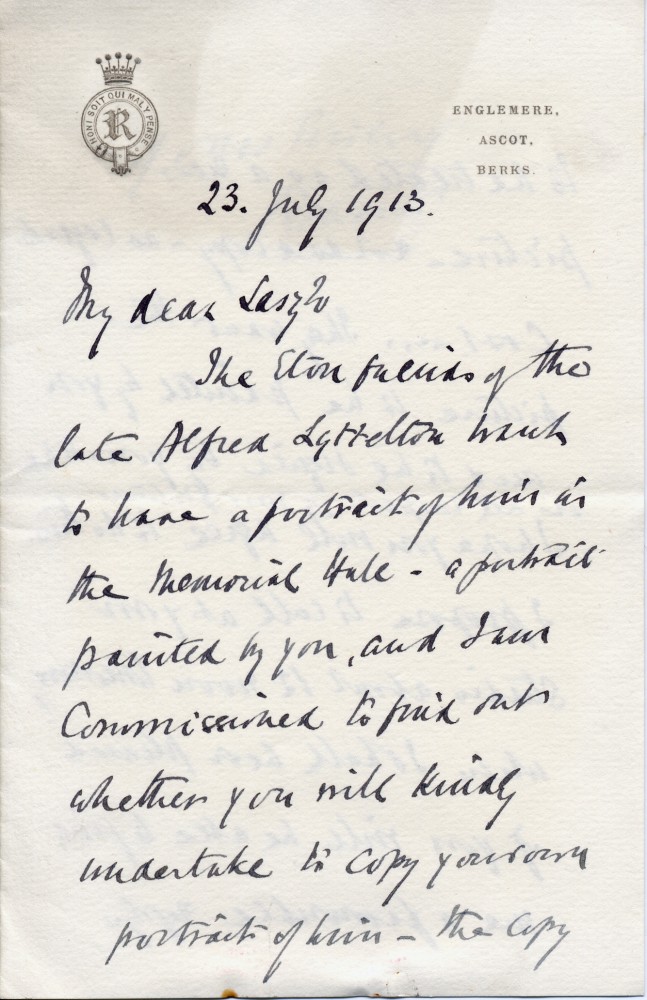 HONI SOIT QUI MAL Y PENSE
R
ENGLEMERE,
ASCOT,
BERKS.
23. July 1913.
My dear Laszlo
The Eton friends of the
late Alfred Lyttelton want
to have a portrait of him in
the Memorial Hall - a portrait
painted by you, and I am
Commissioned to find out
whether you will kindly
undertake to copy your own
portrait of him - the copy